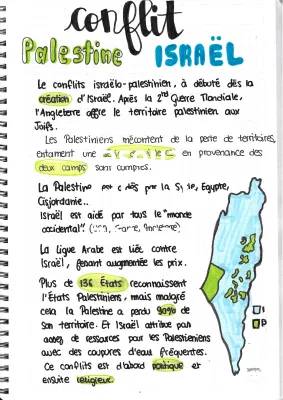 conflit
Palestine ISRAËL
Le conflits israëlo-palestinien, à débuté dès la
création d'Israël. Après la 2nd Guerre Mondiale,
l'Angleterre offre le territoire palestinien aux
Juifs.
Les Palestiniens mécontent de la perte de territoires,
entament une en provenance des
deux camps sont
La Palestine est par la Syrie, Egypte,
Cisjordanie..
Israël est aidé par tous le "monde
accidental"
La ligue Arabe est liée contre
Israël, augmentée les prix.
Plus de 136 États reconnaissent
l'États Palestiniens, mais malgré
cela la Palestine a perdu 90% de
son territoire. Et Israël attribue pas
assez de ressources pour les Palestieniens
avec des coupures d'eau fréquentes.
Ce conflits est d'abord politique et
ensuite religieux.
I
P